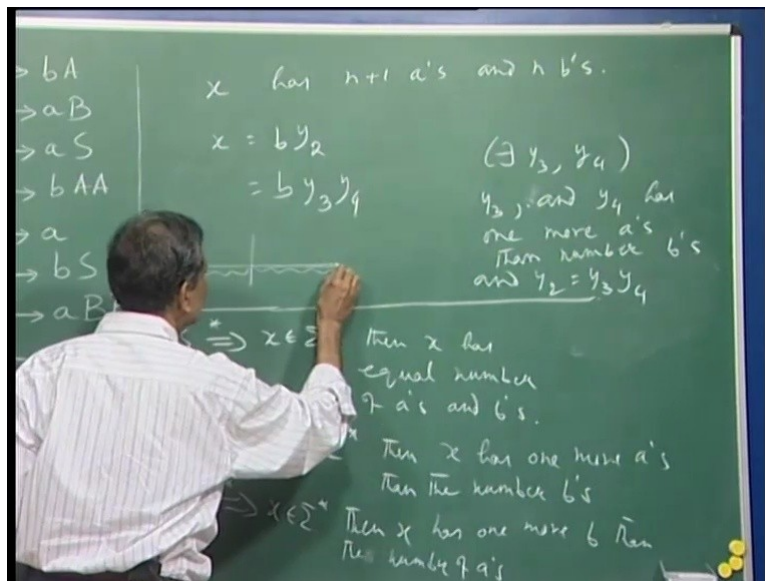 → bA
→ aB
→ aS
→ bAA
→ a
→ bS
→ aB
x has n+1 a's and n b's.
x = by₂
= by₃y₄
(∃ y₃, y₄)
y₃, and y₄ has
one more a's
than number b's
and y₂ = y₃y₄
S ⇒* x ∈ Σ then x has
equal number
of a's and b's.
* Then x has one more a's
than the number b's
⇒* x ∈ Σ* Then x has one more b than
the number of a's